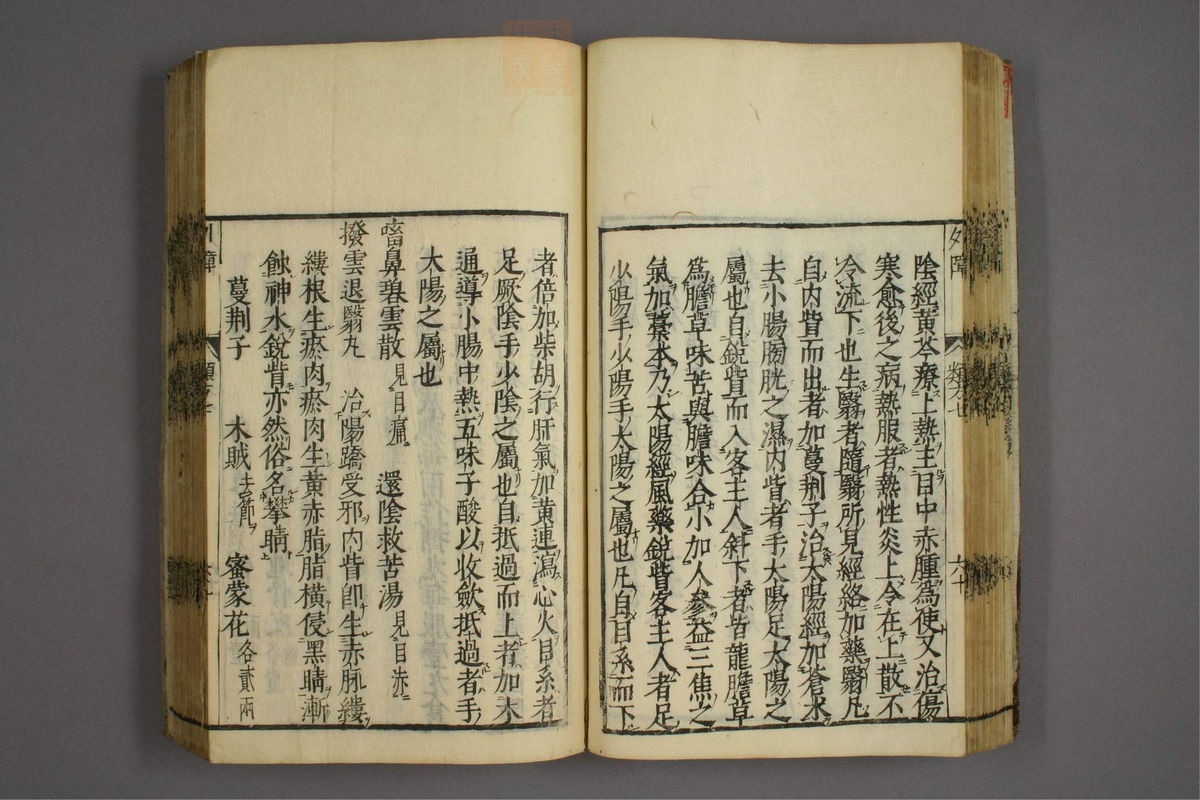 陰經黃芩療上熱主目中赤腫爲使又治傷
寒愈後之病熱服者熱性炎上令在上散不
冷流下也生翳者隨翳所見經絡加藥翳凡
自内眥而出者加蔓荆子治太陽經加蒼朮
去小腸膀胱之濕内眥者手太陽足太陽之
屬也自銳眥而入客主人斜下者皆龍膽草
爲膽草味苦與膽味合小加人參益三焦之
氣加藁本乃太陽經風藥銳眥客主人者足
少陽手少陽手太陽之屬也凡自目系而下
者倍加柴胡行肝氣加黃連瀉心火目系者
足厥陰手少陰之屬也自抵過而上者加木
通導小腸中熱五味子酸以收歛抵過者手
太陽之屬也
㗜鼻碧雲散見目痛 還陰救苦湯見目赤
撥雲退翳丸 治陽蹻受邪内眥卽生赤脉縷
縷根生瘀肉瘀肉生黃赤脂脂橫侵黑睛漸
蝕神水銳眥亦然俗名攀睛
蔓荆子 木賊去節 蜜蒙花各貳兩